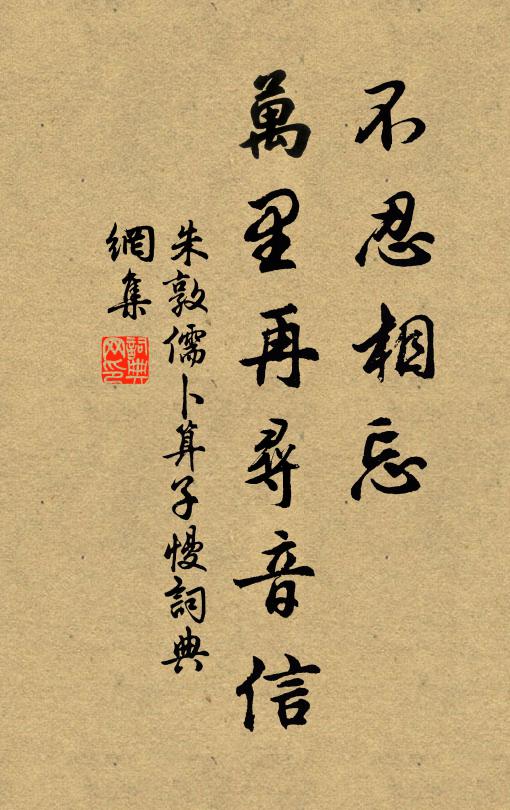 不忍相忘
萬里再尋音信
朱敦儒卜算子慢詞典
網集
詞典
网印